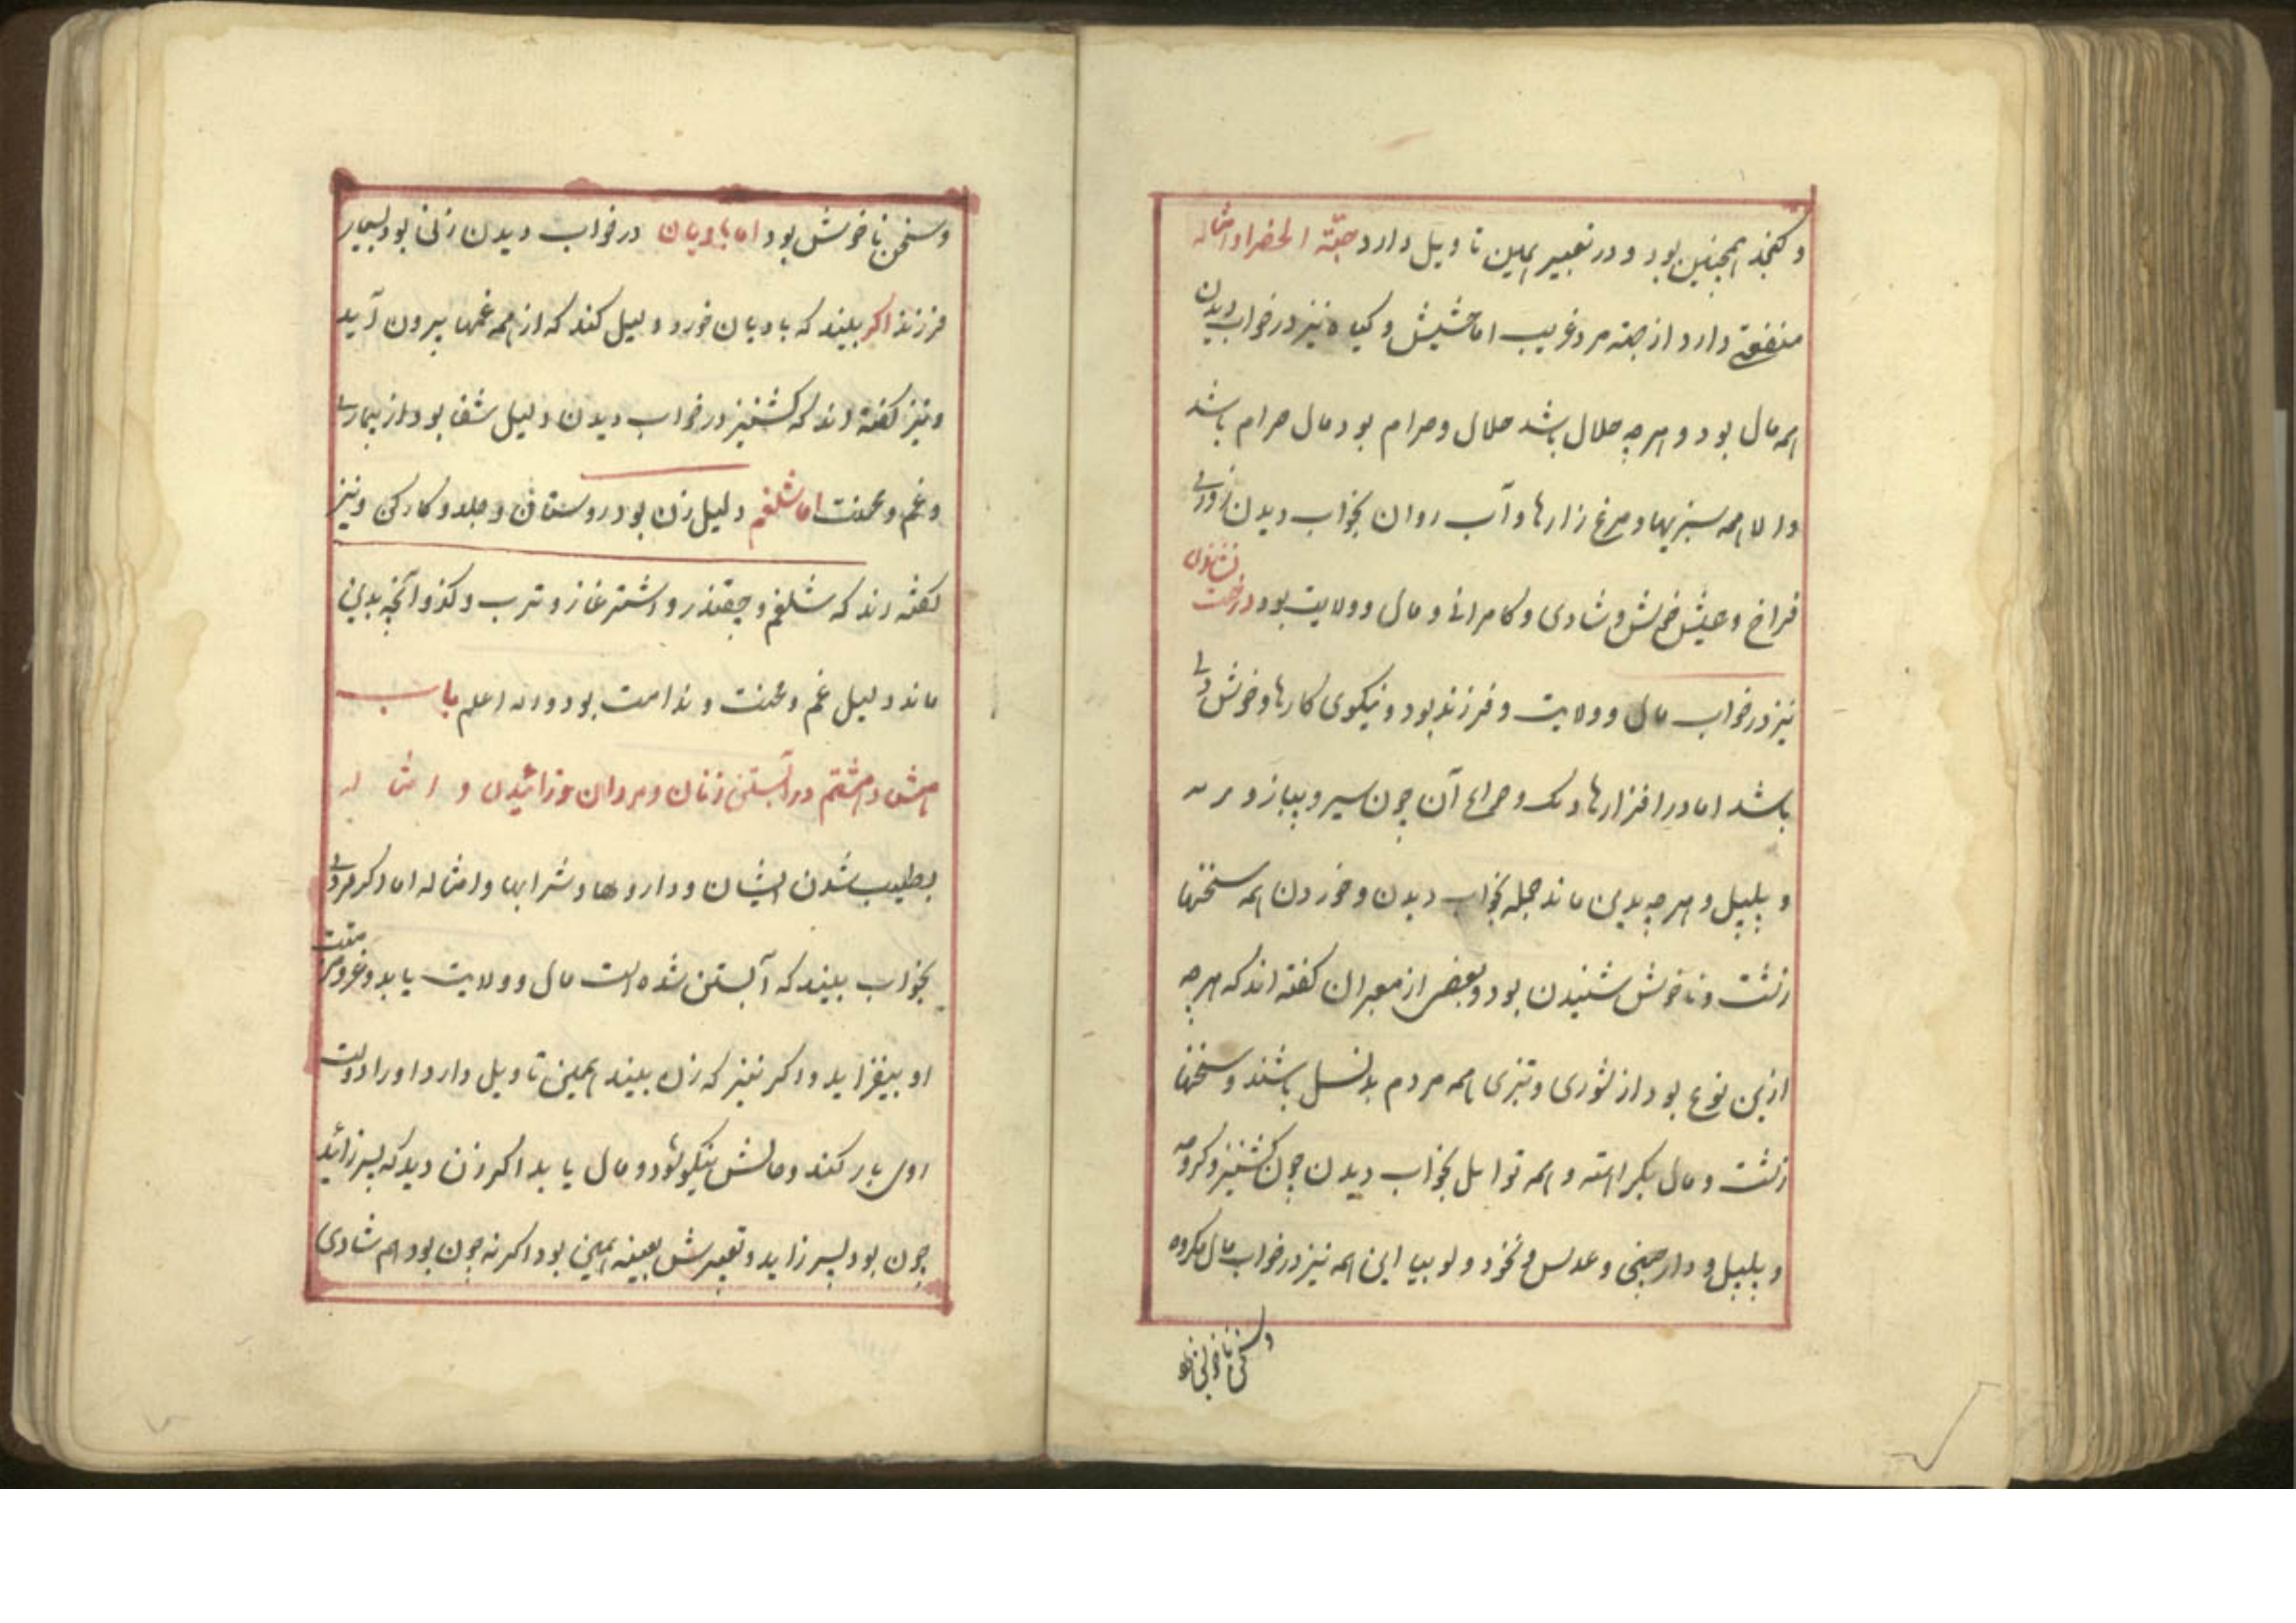 و کنجد همچنین بود و در تعبیر همین تاویل دارد حبّة الخضرا و امثاله
منفعتی دارد از جهته مرد غریب اما حشیش و کیاه نیز در خواب دیدن
همه مال بود و هر چه حلال باشد حلال و حرام بود مال حرام باشد
همه سبزیها و مرغ زارها و آب روان بخواب دیدن روزی
فراخ و عیش خوش و شادی و کامرانی و مال و ولایت بود درخت نشاندن
نیز در خواب مال و ولایت و فرزند بود و نیکوی کارها و خوش دلی
باشد اما در افزارها آن چون سیر و پیاز و
و پلپل و هر چه بدین ماند جمله بخواب دیدن و خوردن همه سخنها
زشت و ناخوش شنیدن بود و بعضی از معبران کفته اند که هر چه
ازین نوع بود از شوری و تیزی همه مردم بد نسل باشند و سخنها
زشت و مال بکراهته و همه توابل بخواب دیدن چون کشنیز و کرویه
و پلپل و دارچینی و عدس و نخود و لوبیا این همه نیز در خواب مال مکروه
و سخن ناخوش بود
و سخن ناخوش بود اما بادیان در خواب دیدن زنی بود بسیار
فرزند اکر بیند که بادیان خورد دلیل کند که از همه غمها بیرون آید
و نیز کفته اند که کشنیز در خواب دیدن دلیل شفا بود از بیماری
و غم و محنت اما شلغم دلیل زن بود روستائی و جلد و کارکن و نیز
کفته اند که شلغم و چقندر و اشترغاز و ترب و کذو آنچه بدین
ماند دلیل غم و محنت و ندامت بود والله اعلم باب
هشتاد هشتم در آبستنی زنان و مردان و زائیدن و امثاله
بطبیب شدن ایشان و داروها و شرابها و امثاله اما اکر مردی
بخواب بیند که آبستن شده است مال و ولایت یابد و نعمت
او بیفزاید و اکر نیز که زن بیند همین تاویل دارد او را دولت
روی باز کند و حالش نیکو شود و مال یابد اکر زن دید که پسر زائید
چون بود پسر زاید و تعبیرش بعینه همین بود اکر نه چون بود هم شادی